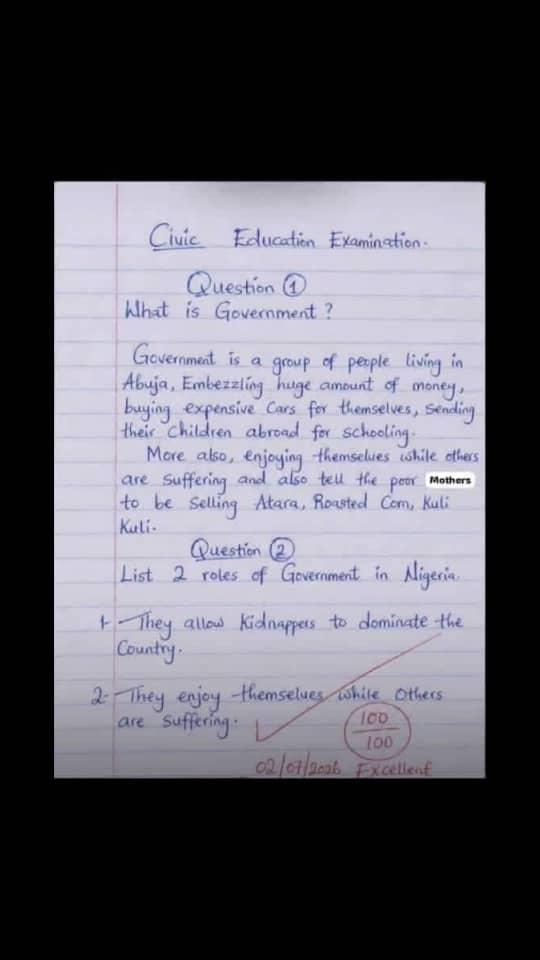 Civic Education Examination.
Question 1
What is Government?
Government is a group of people living in
Abuja, Embezzling huge amount of money,
buying expensive Cars for themselves, Sending
their Children abroad for schooling.
More also, enjoying themselves while others
are suffering and also tell the poor Mothers
to be selling Atara, Roasted Corn, Kuli
Kuli.
Question 2
List 2 roles of Government in Nigeria.
1- They allow Kidnappers to dominate the
Country.
2- They enjoy themselves while Others
are suffering.
100
100
02/07/2026 Excellent